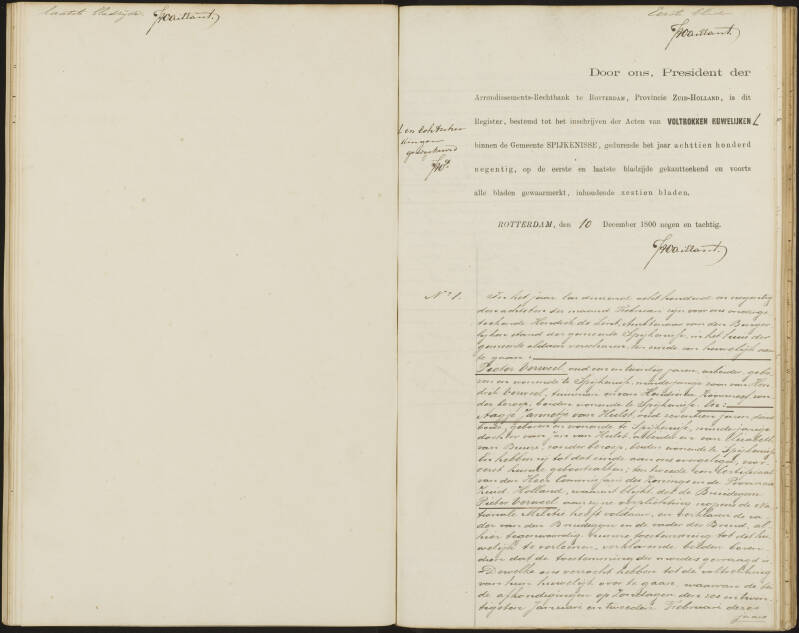 laatste bladzijde. JWaillant.
Eerste blad
JWaillant.
Door ons, President der
Arrondissements-Rechtbank te ROTTERDAM, Provincie ZUID-HOLLAND, is dit
Register, bestemd tot het inschrijven der Acten van VOLTROKKEN HUWELIJKEN L
binnen de Gemeente SPIJKENISSE, gedurende het jaar achttien honderd
negentig, op de eerste en laatste bladzijde gekantteekend en voorts
alle bladen gewaarmerkt, inhoudende zestien bladen.
L en Echtschei
dingen
goedgekeurd
ROTTERDAM, den 10 December 1800 negen en tachtig.
JWaillant.
No 1.
In het jaar een duizend acht honderd en negentig
den achtsten der maand Februari zijn voor ons onderge
teekende Hendrik de Lint, Ambtenaar van den Burger
lijken stand der gemeente Spijkenisse, in het huis der
gemeente aldaar verschenen, ten einde een huwelijk aan
te gaan:
Pieter Verweel, oud een en twintig jaren, arbeider, gebo
ren en wonende te Spijkenisse, minderjarige zoon van Hen
drik Verweel, tuinman en van Hendrika zon
der beroep, beiden wonende te Spijkenisse. En:
Aagje Jannetje van Hulst, oud zeventien jaren, dienst
bode, geboren en wonende te Spijkenisse, minderjarige
dochter van Jan van Hulst, arbeider en van Elizabeth
van Buuren, zonder beroep, beiden wonende te Spijkenisse
En hebben zij tot dat einde aan ons overgelegd, voor
eerst hunne geboorteakten; ten tweede een Certificaat
van den Heer Commissaris des Konings in de Provincie
Zuid Holland, waaruit blijkt dat de Bruidegom
Pieter Verweel aan zijne verpligting nopens de Na
tionale Militie heeft voldaan, en verklaren de va
der van den Bruidegom en de vader der Bruid, al
hier tegenwoordig, hunne toestemming tot dit hu
welijk te verleenen, verklarende beiden boven
dien dat de toestemming der moeders gevraagd is.
Dewelke ons verzocht hebben tot de voltrekking
van hun huwelijk over te gaan, waarvan de bei
de afkondigingen op Zondagen den zes en twin
tigsten Januari en tweeden Februari dezes
jaars